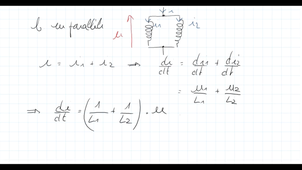 L en parallèle
u
i
i1
i2
i = i1 + i2 ⇒ di/dt = di1/dt + di2/dt
= u1/L1 + u2/L2
⇒ di/dt = (1/L1 + 1/L2) . u